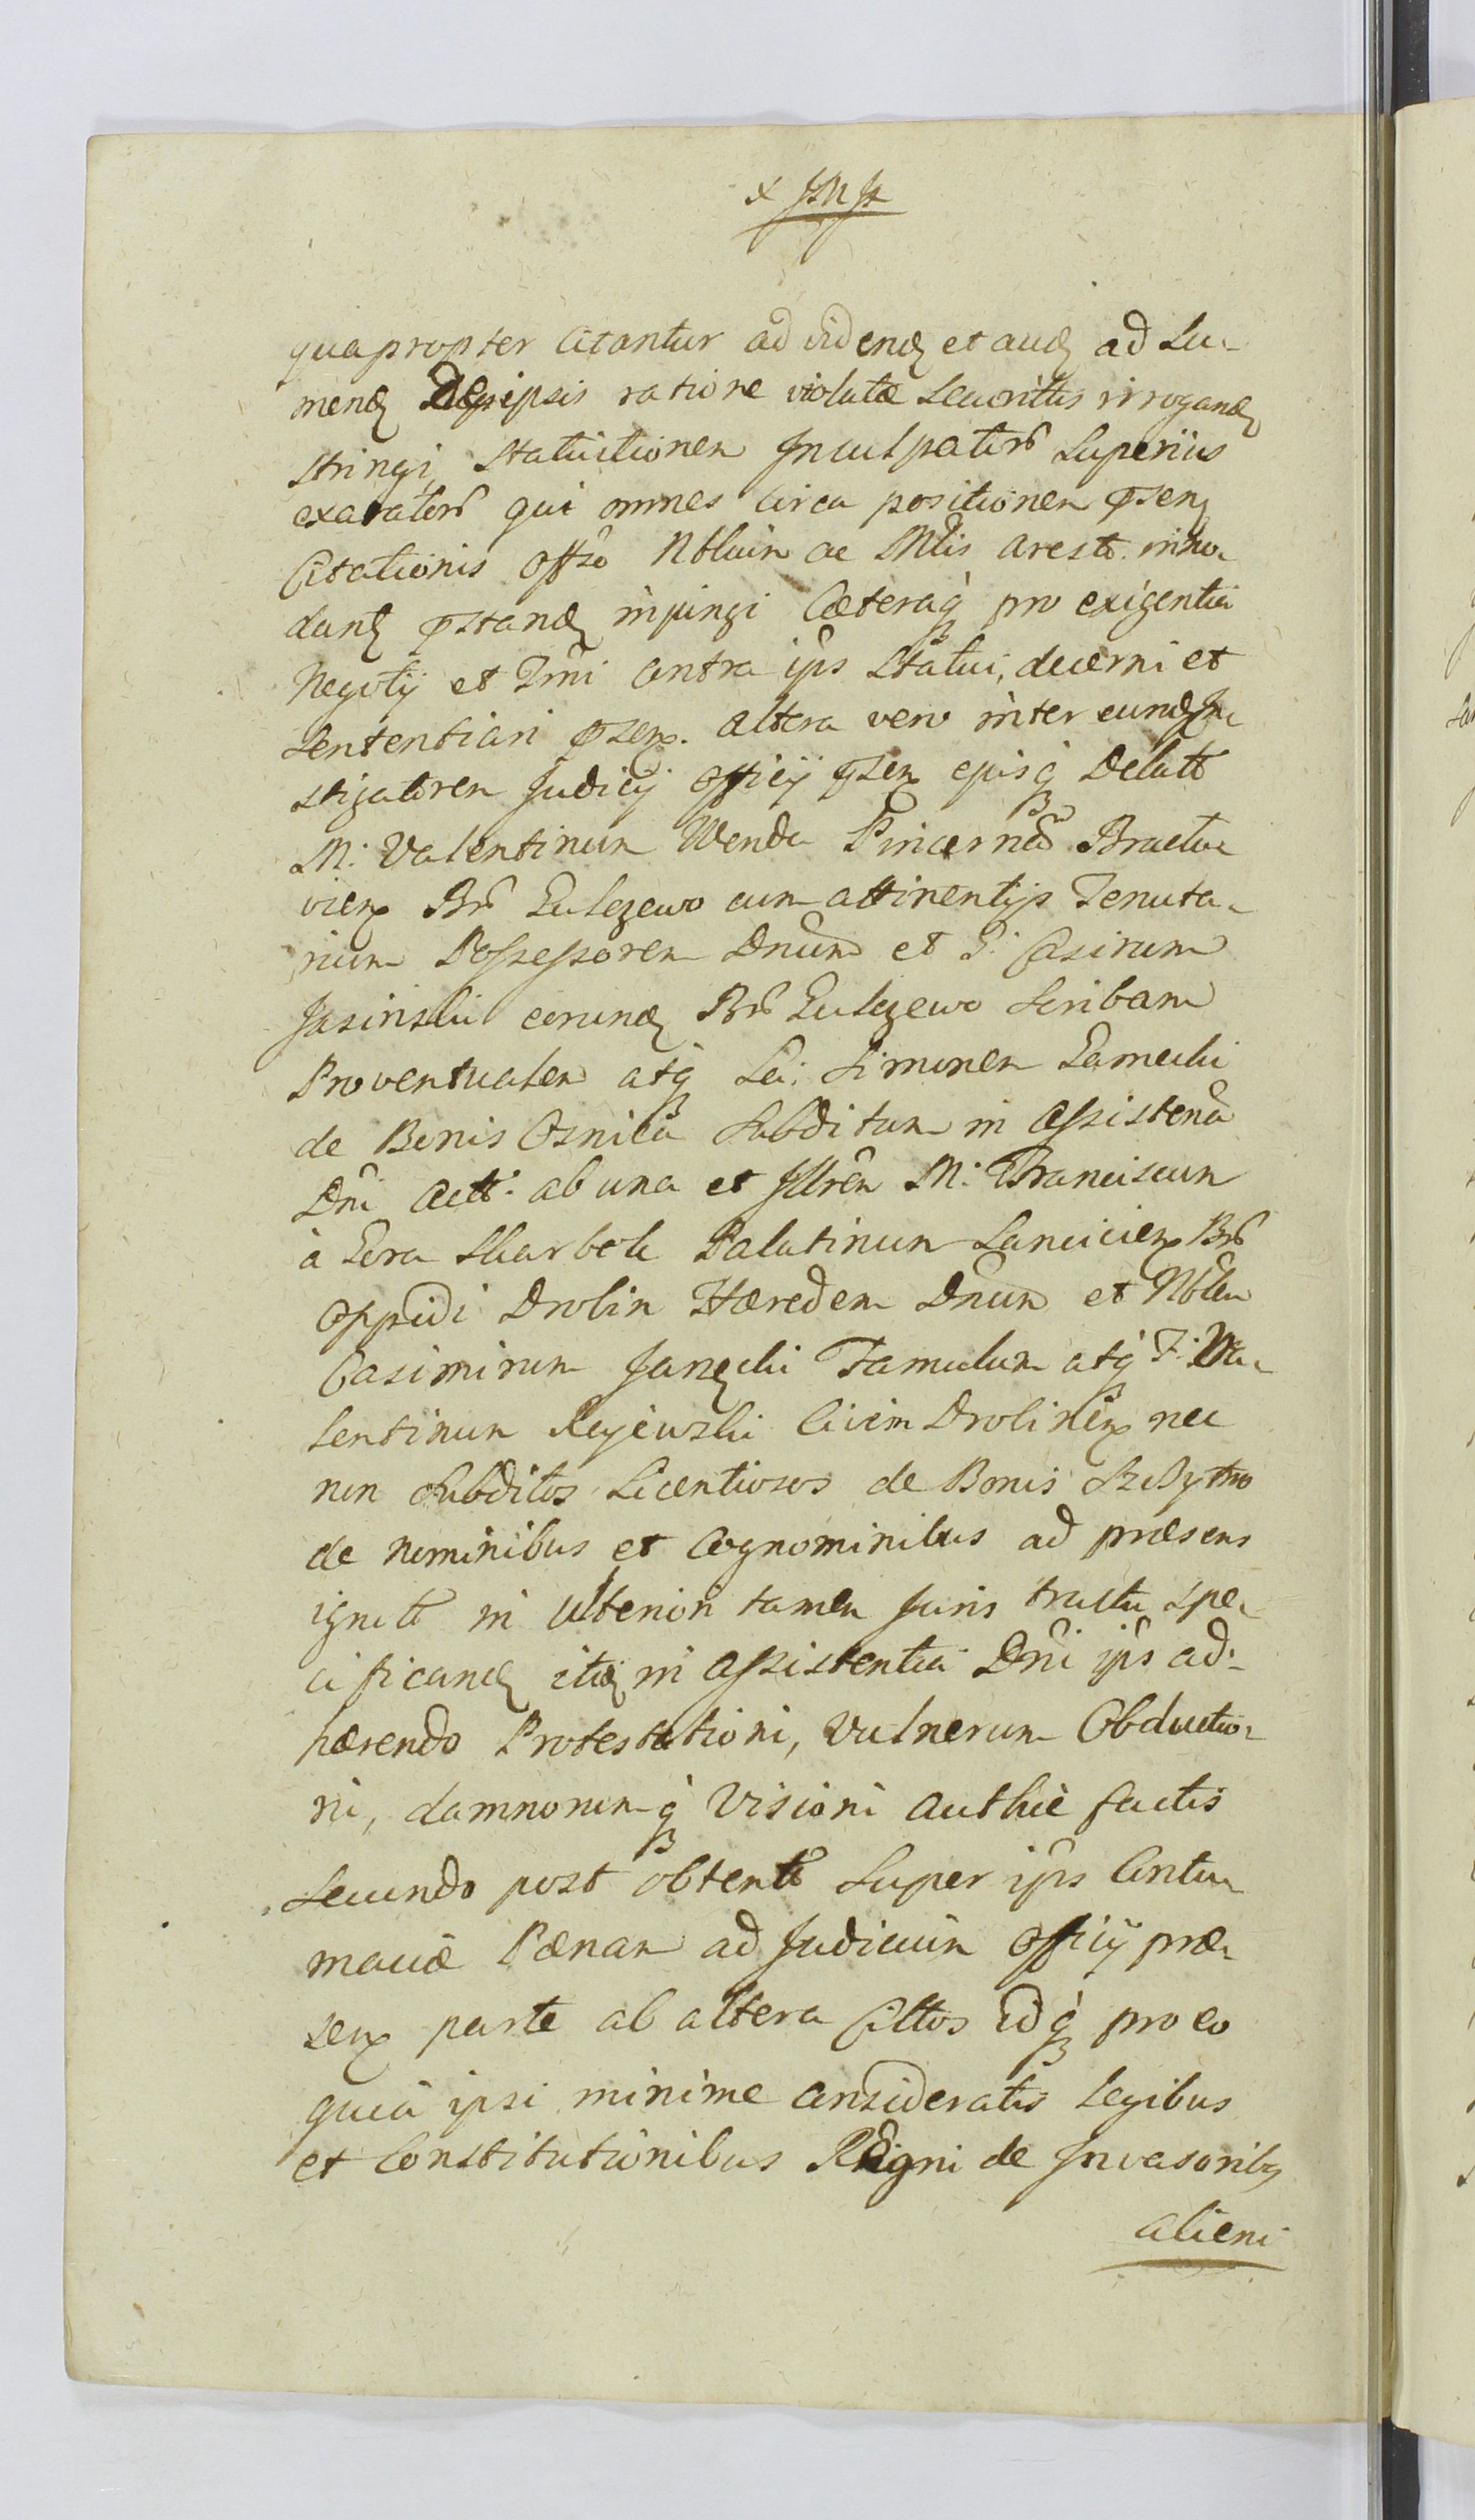 quapropter Citantur ad videnđ et auđ ad Lu-
menđ ipsis ratione violatæ Securittis irroganđ
stringi, Statuitionem Inculpatorũ Superius
exaratorũ qui omnes circa positionem pñsenʒ
Citationis offo Nbluin ac Mtis Arest. inno-
danđ pstanđ injungi Cæteraqʒ pro exigentia
Negotij et Tmi contra ips Statui, decerni et
Sententiari psenʒ. altera vero inter eundʒ In-
stigatorem Judicij officij psen ejusqʒ Delatt
M: Valentinum Wenda Pincernaʒ Bracla-
vien Brũ Lulezewo cum attinentijs Tenuta-
rium Possessorem Dnum et G: Casirum
Jasinski eorunđ Brũ Lulezewo Scribam
Proventualem atqʒ La: Simonem
de Bonis Osnica Subditum in Assistena
Dni Actt. ab una et Illrem M: Franciscum
à Gora Skarbek Palatinum Lancicien Brũ
Oppidi Drobin Hæredem Dnum et Nblem
Casimirum Famulum atqʒ F: Va-
lentinum Civem Drobinen nec
non Subditos Licentiosos de Bonis
de nominibus et Cognominibus ad præsens
ignott in Ulteriori tamen Juris tractu spe-
cificandʒ itidʒ in Assistentia Dni ips ad-
hærendo Protestationi, Vulnerum Obductio-
ni, damnorumqʒ Visioni authĉe factis
Secundo post obtentt Super ips Contu-
maciæ Pænam ad Judicium Officij præ-
sen parte ab altera Cittos Idqʒ pro eo
quia ipsi minime Consideratis Legibus
et Constitutionibus Regni de Invasoribʒ
alieni